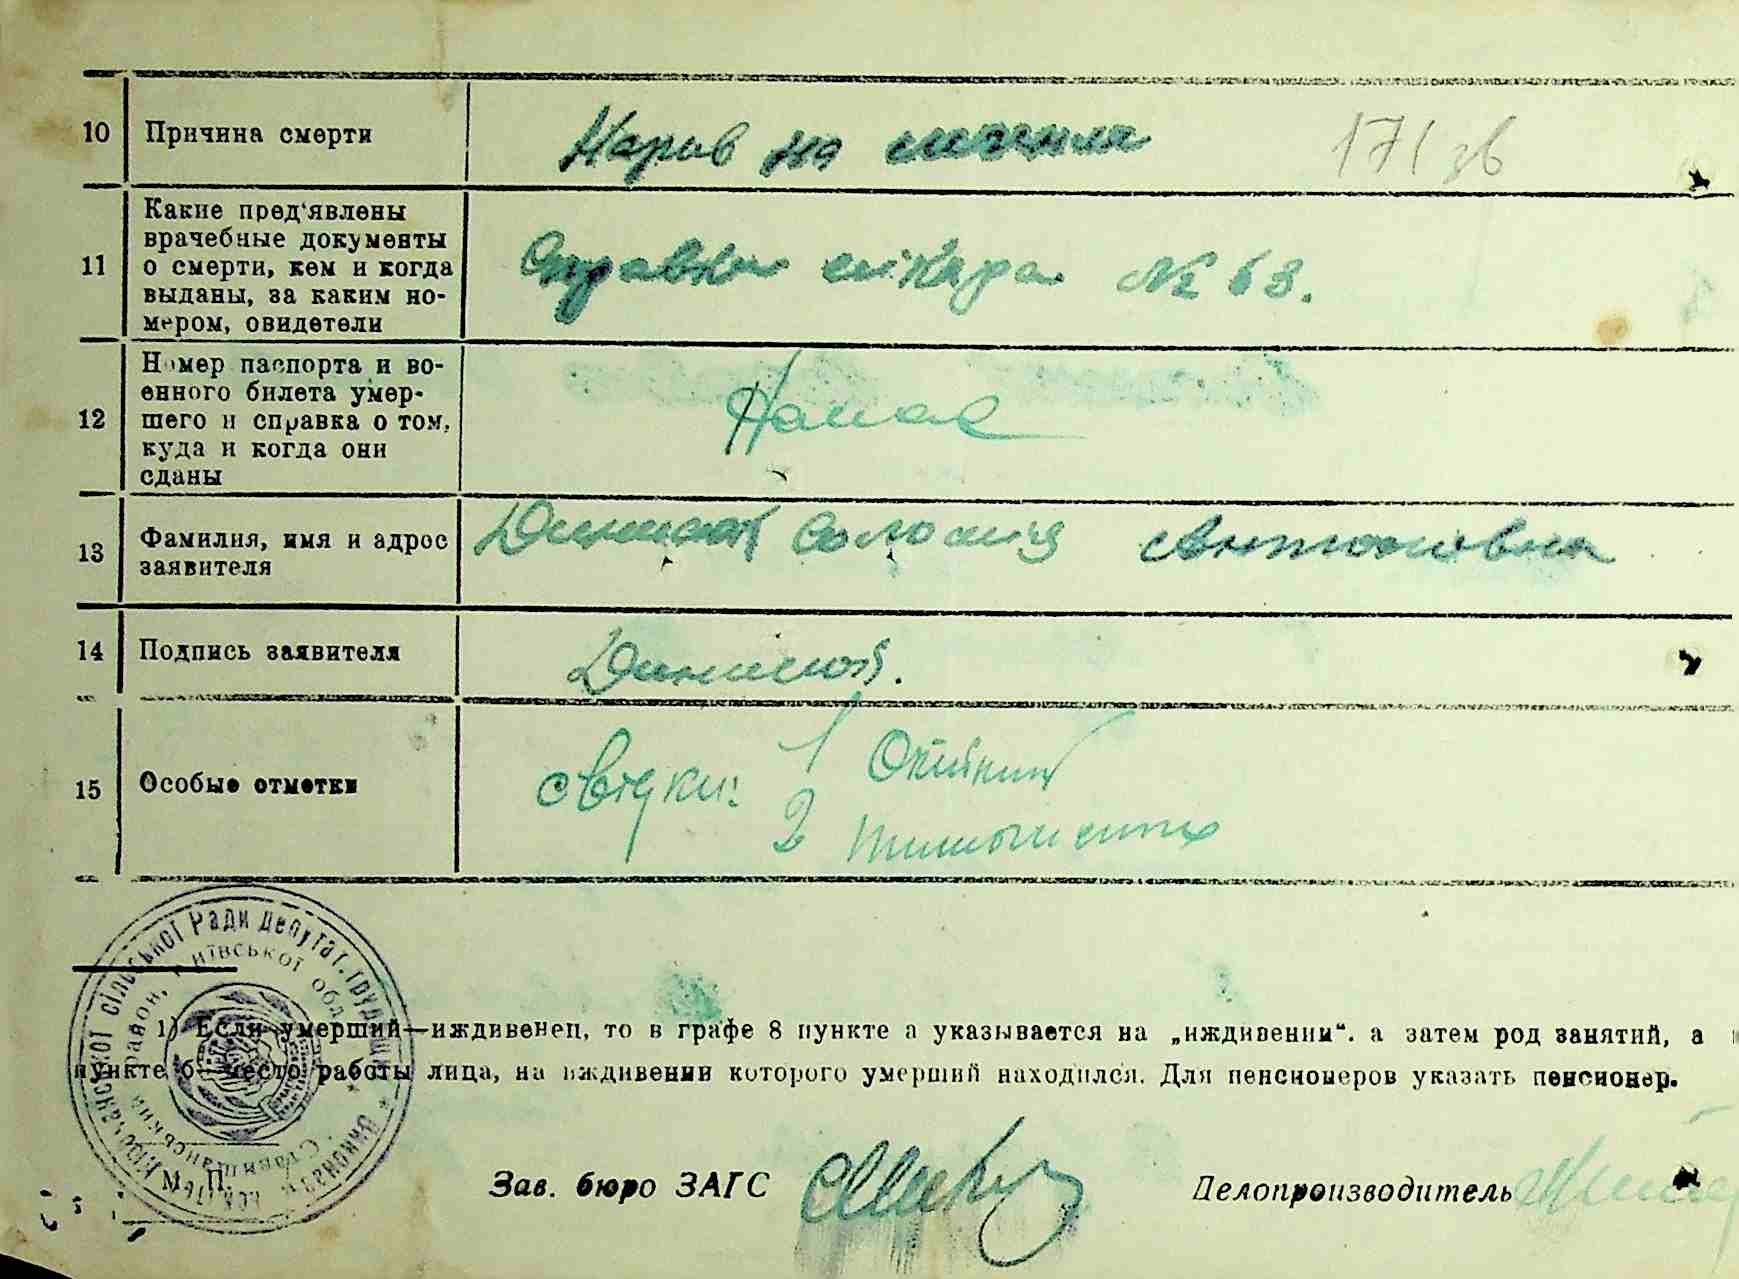 10 Причина смерти Нарив на 171 зв
11 Какие пред'явлены
врачебные документы
о смерти, кем и когда
выданы, за каким но-
мером, свидетели
Справка лікаря № 63.
12 Номер паспорта и во-
енного билета умер-
шего и справка о том,
куда и когда они
сданы
Немає
13 Фамилия, имя и адрес
заявителя
Антоновна
14 Подпись заявителя
15 Особые отметки
свідки: 1
2
сільської Ради депутат. трудящих * Виконавч. комітет
Ставищанський район, Київської обл.
1) Если умерший—иждивенец, то в графе 8 пункте а указывается на „иждивении“. а затем род занятий, а
пункте б место работы лица, на иждивении которого умерший находился. Для пенсионеров указать пенсионер.
М. П.
Зав. бюро ЗАГС
Делопроизводитель